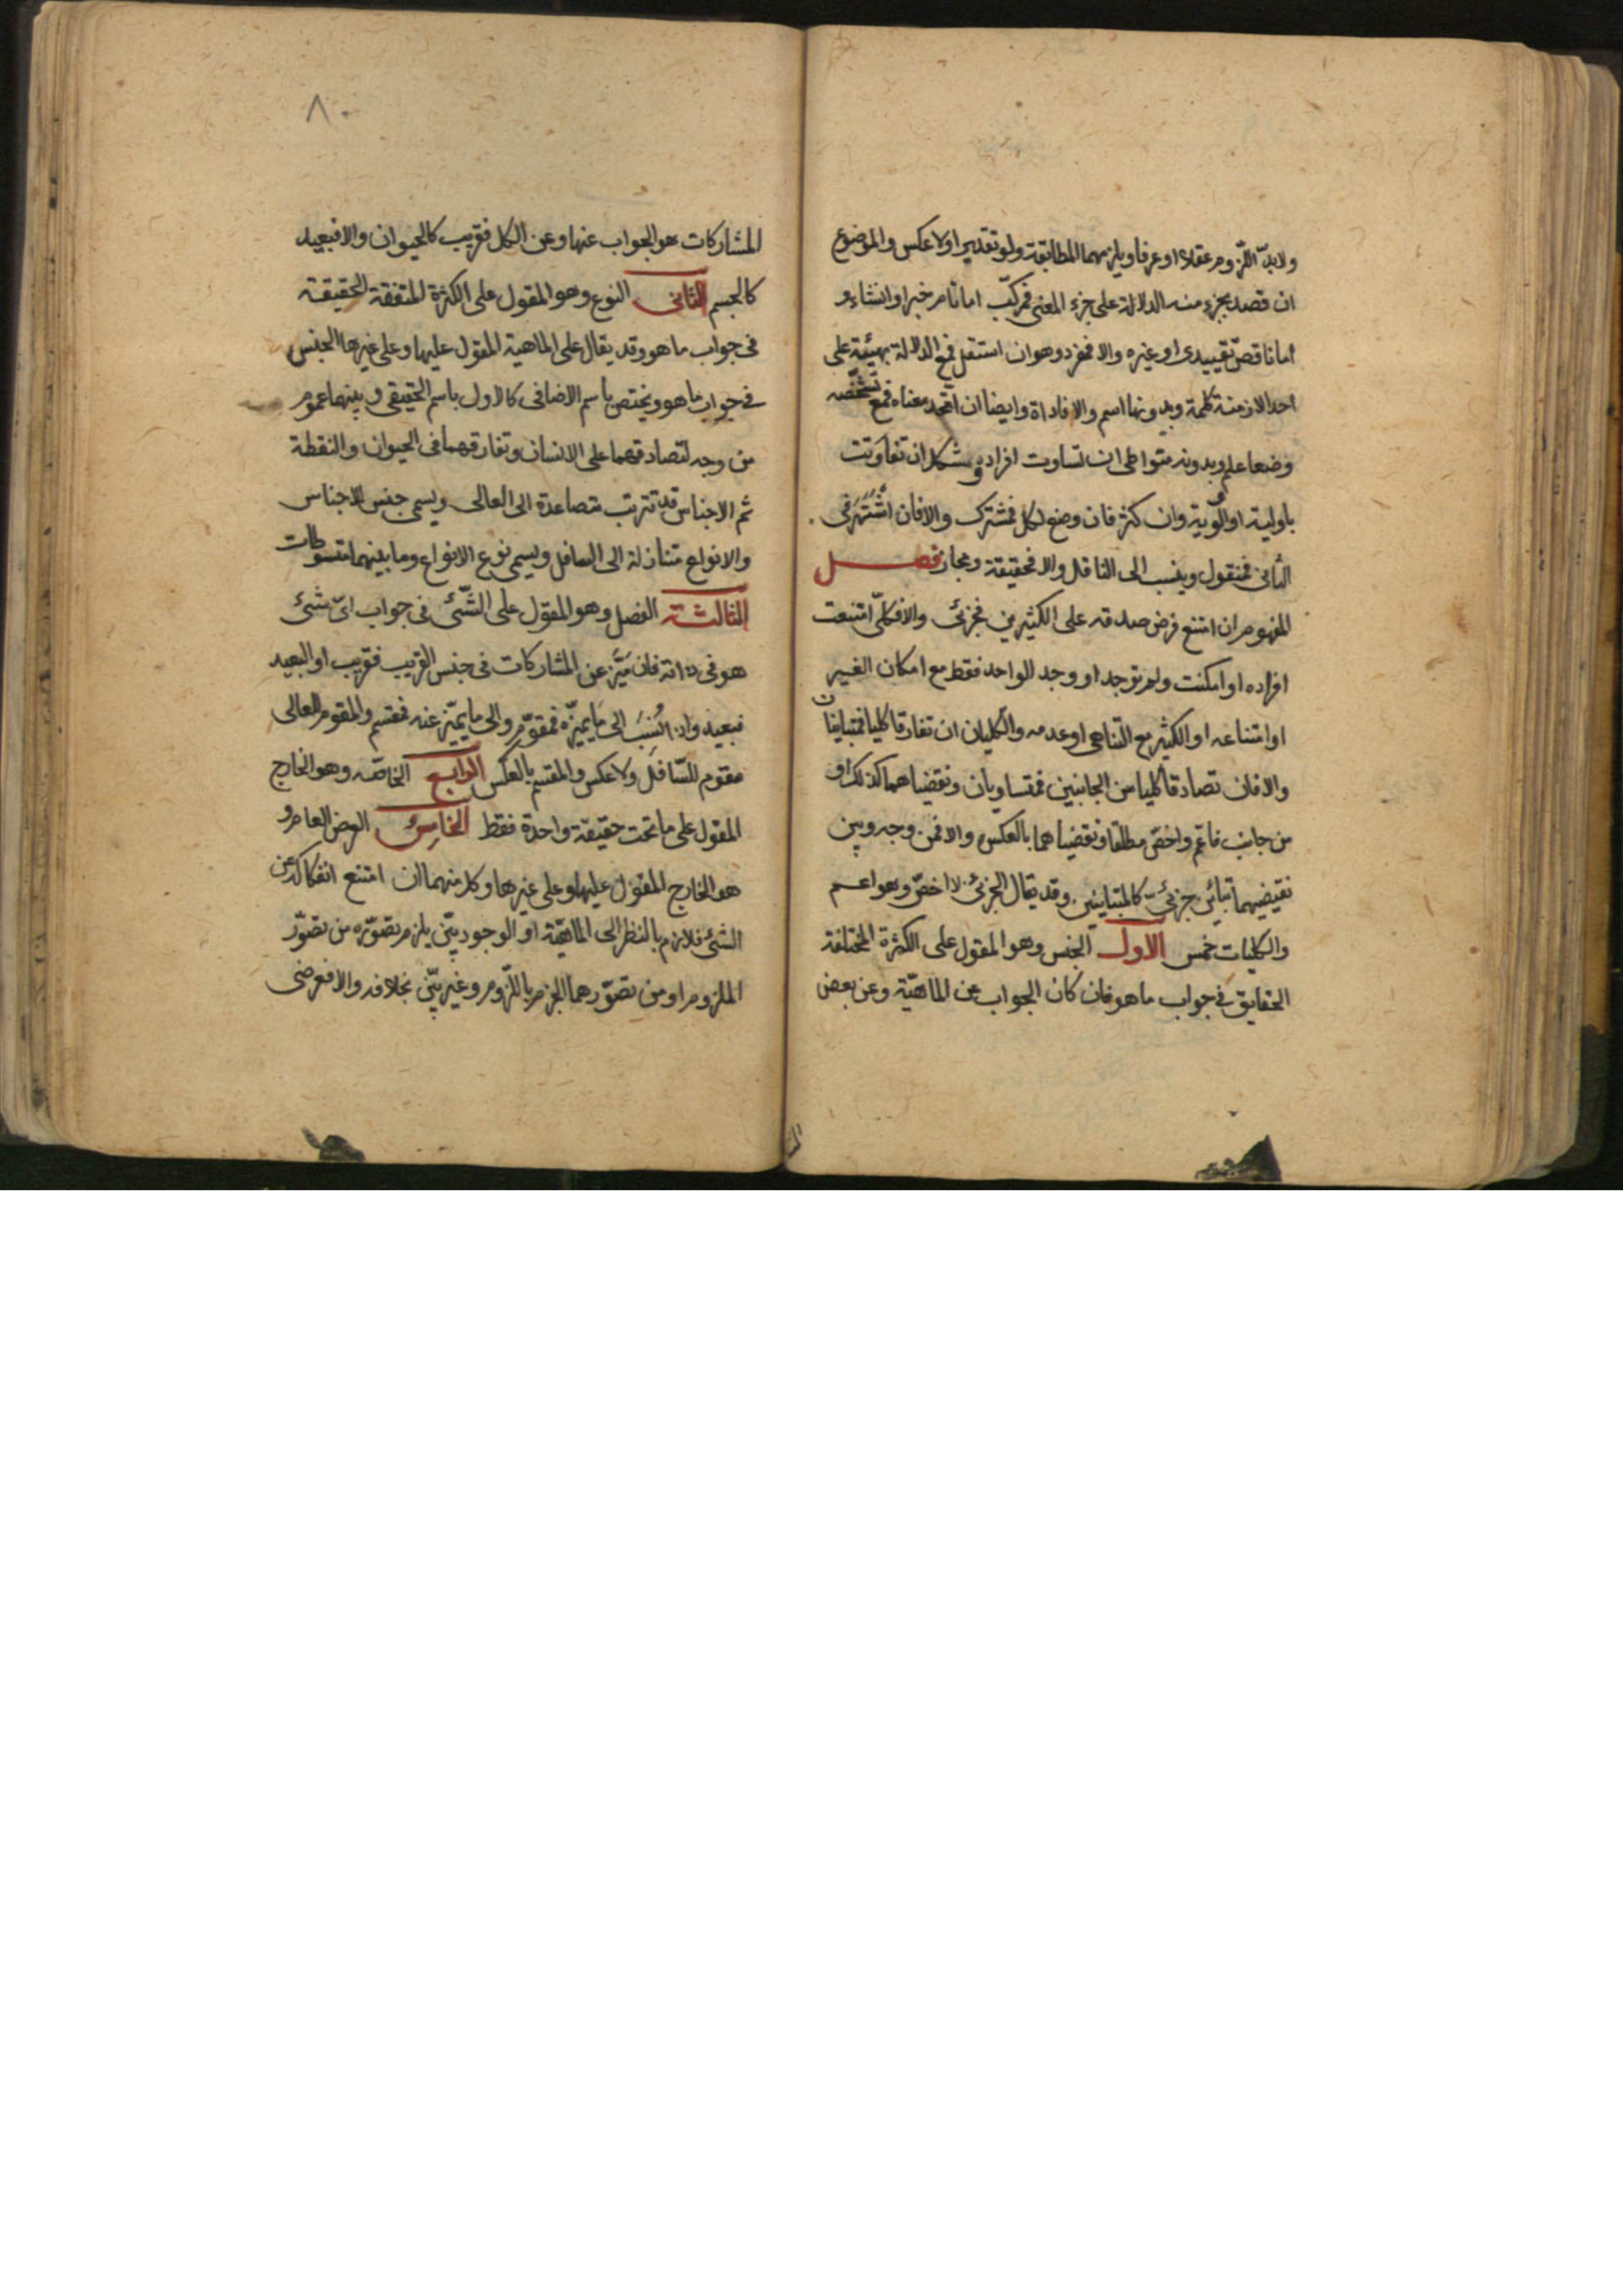 ولابد اللزوم عقلا او عرفا ويلزمهما المطابقة ولو تقديرا ولا عكس والموضوع
ان قصد بجزء منه الدلالة على جزء المعنى فمركب اما تام خبر او انشاء و
اما ناقص تقييدى او غيره والا فمفرد وهو ان استقل فمع الدلالة بهيئته على
احد الازمنة كلمة وبدونها اسم والا فاداة وايضا ان اتحد معناه فمع تشخّصه
وضعا علم وبدونه متواطى ان تساوت افراده ومشكك ان تفاوتت
باولية او اولوية وان كثر فان وضع لكل فمشترك والا فان اشتهر فى
الثانى فمنقول وينسب الى الناقل والا فحقيقة ومجاز فصل
المفهوم ان امتنع فرض صدقه على الكثيرين فجزئى والا فكلى امتنعت
افراده او امكنت ولم توجد او وجد الواحد فقط مع امكان الغير
او امتناعه او الكثير مع التناهى او عدمه والكليان ان تفارقا كليا فمتباينان
والا فان تصادقا كليا من الجانبين فمتساويان ونقيضاهما كذلك او
من جانب فاعم واخص مطلقا ونقيضاهما بالعكس والا فمن وجه وبين
نقيضيهما تباين جزئى كالمتباينين وقد يقال الجزئى للاخص وهو اعم
والكليات خمس الاول الجنس وهو المقول على الكثرة المختلفة
الحقايق فى جواب ماهو فان كان الجواب عن الماهية وعن بعض
٨٠
المشاركات هو الجواب عنها وعن الكل فقريب كالحيوان والا فبعيد
كالجسم الثانى النوع وهو المقول على الكثرة المتفقة الحقيقة
فى جواب ما هو وقد يقال على الماهية المقول عليها وعلى غيرها الجنس
فى جواب ما هو ويختص باسم الاضافى كالاول باسم الحقيقى وبينهما عموم
من وجه لتصادقهما على الانسان وتفارقهما فى الحيوان والنقطة
ثم الاجناس قد تترتب متصاعدة الى العالى ويسمى جنس الاجناس
والانواع متنازلة الى السافل ويسمى نوع الانواع وما بينهما متسوطات
الثالث الفصل وهو المقول على الشئ فى جواب اى شئ
هو فى ذاته فان ميّز عن المشاركات فى جنس القريب فقريب او البعيد
فبعيد واذا نُسب الى ما يميّزه فمقوّم والى ما يميّز عنه فمقسم والمقوم للعالى
مقوم للسّافل ولا عكس والمقسم بالعكس الرابع الخاصّه وهو الخارج
المقول على ما تحت حقيقة واحدة فقط الخامس العرض العام و
هو الخارج المقول عليها وعلى غيرها وكل منهما ان امتنع انفكاكه عن
الشئ فلازم بالنظر الى الماهيّة او الوجود بيّن يلزم تصوّره من تصوّر
الملزوم او من تصوّرهما الجزم باللّزوم وغير بيّن بخلافه والا فعرضى